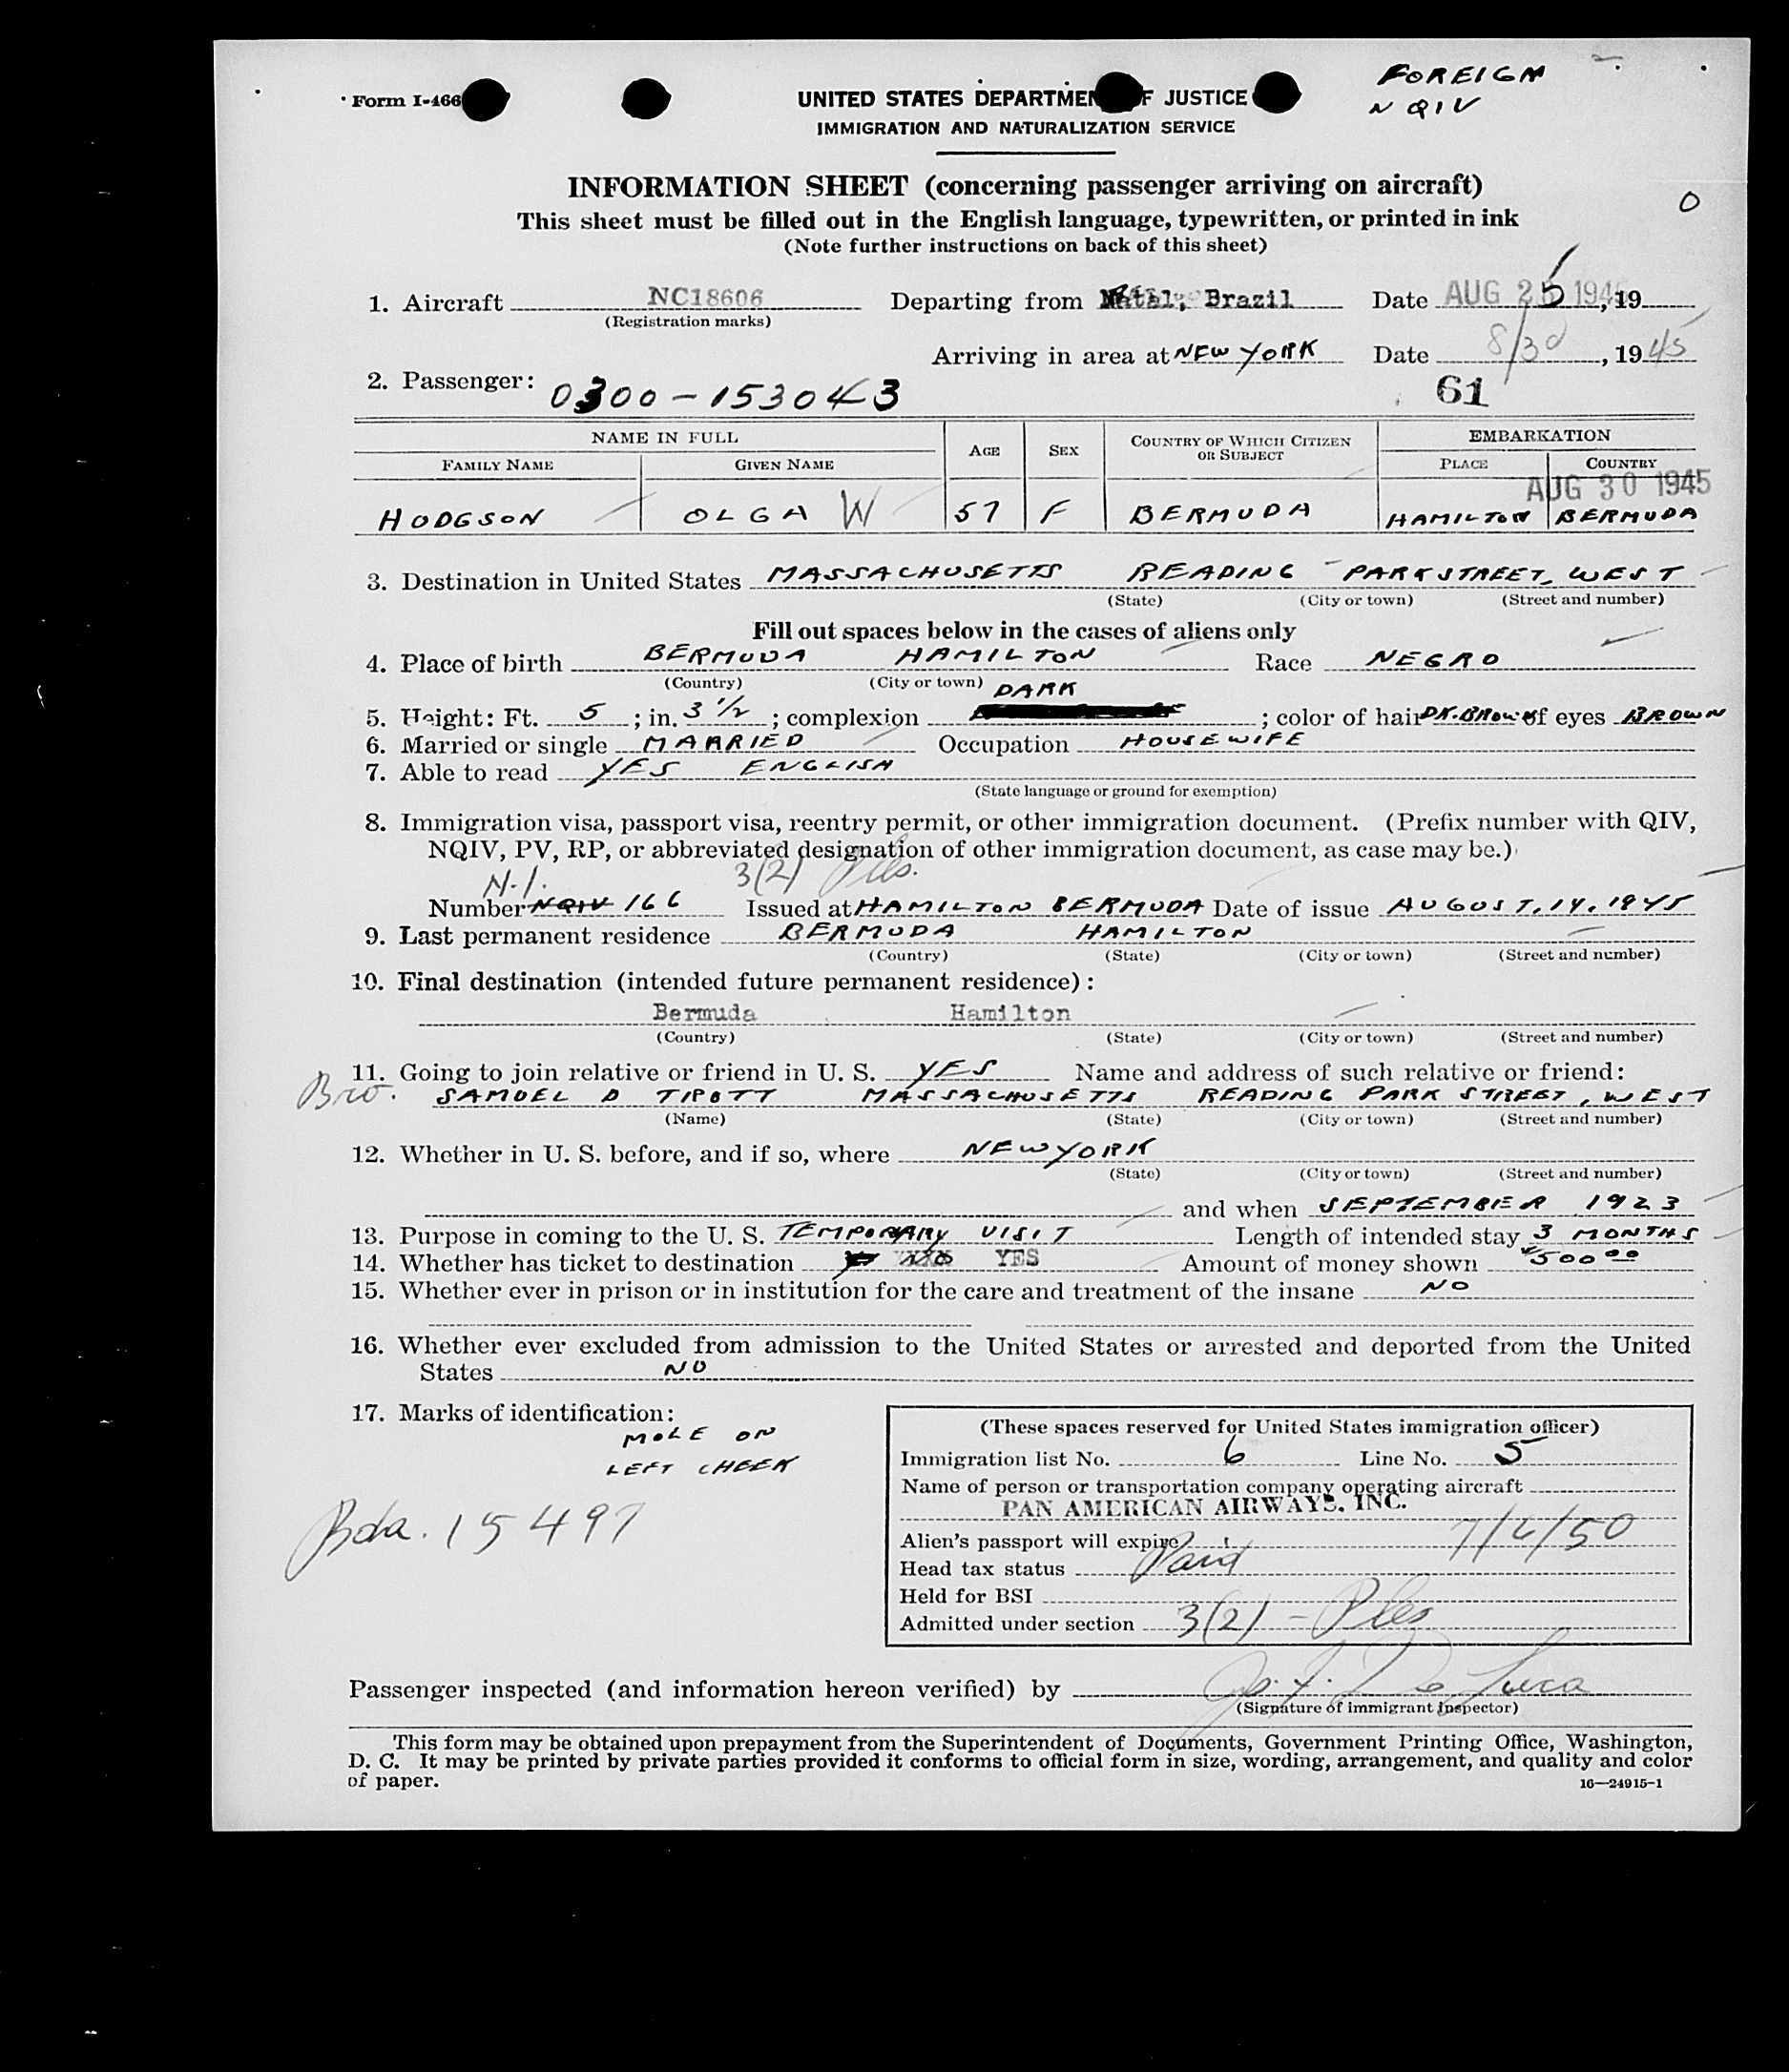 FOREIGN
Form I-466
UNITED STATES DEPARTMENT OF JUSTICE
N QIV
IMMIGRATION AND NATURALIZATION SERVICE
INFORMATION SHEET (concerning passenger arriving on aircraft)
O
This sheet must be filled out in the English language, typewritten, or printed in ink
(Note further instructions on back of this sheet)
1. Aircraft NC18606 Departing from Natal, Brazil Date AUG 25 1945, 19
(Registration marks)
Arriving in area at NEW YORK Date 8/30, 1945
2. Passenger: 0300-153043 61
NAME IN FULL AGE SEX COUNTRY OF WHICH CITIZEN OR SUBJECT EMBARKATION
FAMILY NAME GIVEN NAME PLACE COUNTRY
AUG 30 1945
HODGSON OLGA W 57 F BERMUDA HAMILTON BERMUDA
3. Destination in United States MASSACHUSETTS READING PARK STREET, WEST
(State) (City or town) (Street and number)
Fill out spaces below in the cases of aliens only
4. Place of birth BERMUDA HAMILTON Race NEGRO
(Country) (City or town)
DARK
5. Height: Ft. 5; in. 3 1/2; complexion ; color of hair DK. BROWN of eyes BROWN
6. Married or single MARRIED Occupation HOUSEWIFE
7. Able to read YES ENGLISH
(State language or ground for exemption)
8. Immigration visa, passport visa, reentry permit, or other immigration document. (Prefix number with QIV,
NQIV, PV, RP, or abbreviated designation of other immigration document, as case may be.)
N.I. 3(2) Pls.
Number NQIV 166 Issued at HAMILTON BERMUDA Date of issue AUGUST, 14, 1945
9. Last permanent residence BERMUDA HAMILTON
(Country) (State) (City or town) (Street and number)
10. Final destination (intended future permanent residence):
Bermuda Hamilton
(Country) (State) (City or town) (Street and number)
11. Going to join relative or friend in U. S. YES Name and address of such relative or friend:
Bro. SAMUEL D TIPOTT MASSACHUSETTS READING PARK STREET, WEST
(Name) (State) (City or town) (Street and number)
12. Whether in U. S. before, and if so, where NEW YORK
(State) (City or town) (Street and number)
and when SEPTEMBER 1923
13. Purpose in coming to the U. S. TEMPORARY VISIT Length of intended stay 3 MONTHS
14. Whether has ticket to destination YES Amount of money shown $500 00
15. Whether ever in prison or in institution for the care and treatment of the insane NO
16. Whether ever excluded from admission to the United States or arrested and deported from the United
States NO
17. Marks of identification:
MOLE ON
LEFT CHEEK
Bda. 15497
(These spaces reserved for United States immigration officer)
Immigration list No. 6 Line No. 5
Name of person or transportation company operating aircraft
PAN AMERICAN AIRWAYS, INC.
Alien's passport will expire 7/6/50
Head tax status Paid
Held for BSI
Admitted under section 3(2) - Pls
Passenger inspected (and information hereon verified) by
(Signature of immigrant inspector)
This form may be obtained upon prepayment from the Superintendent of Documents, Government Printing Office, Washington,
D. C. It may be printed by private parties provided it conforms to official form in size, wording, arrangement, and quality and color
of paper.
16—24915-1